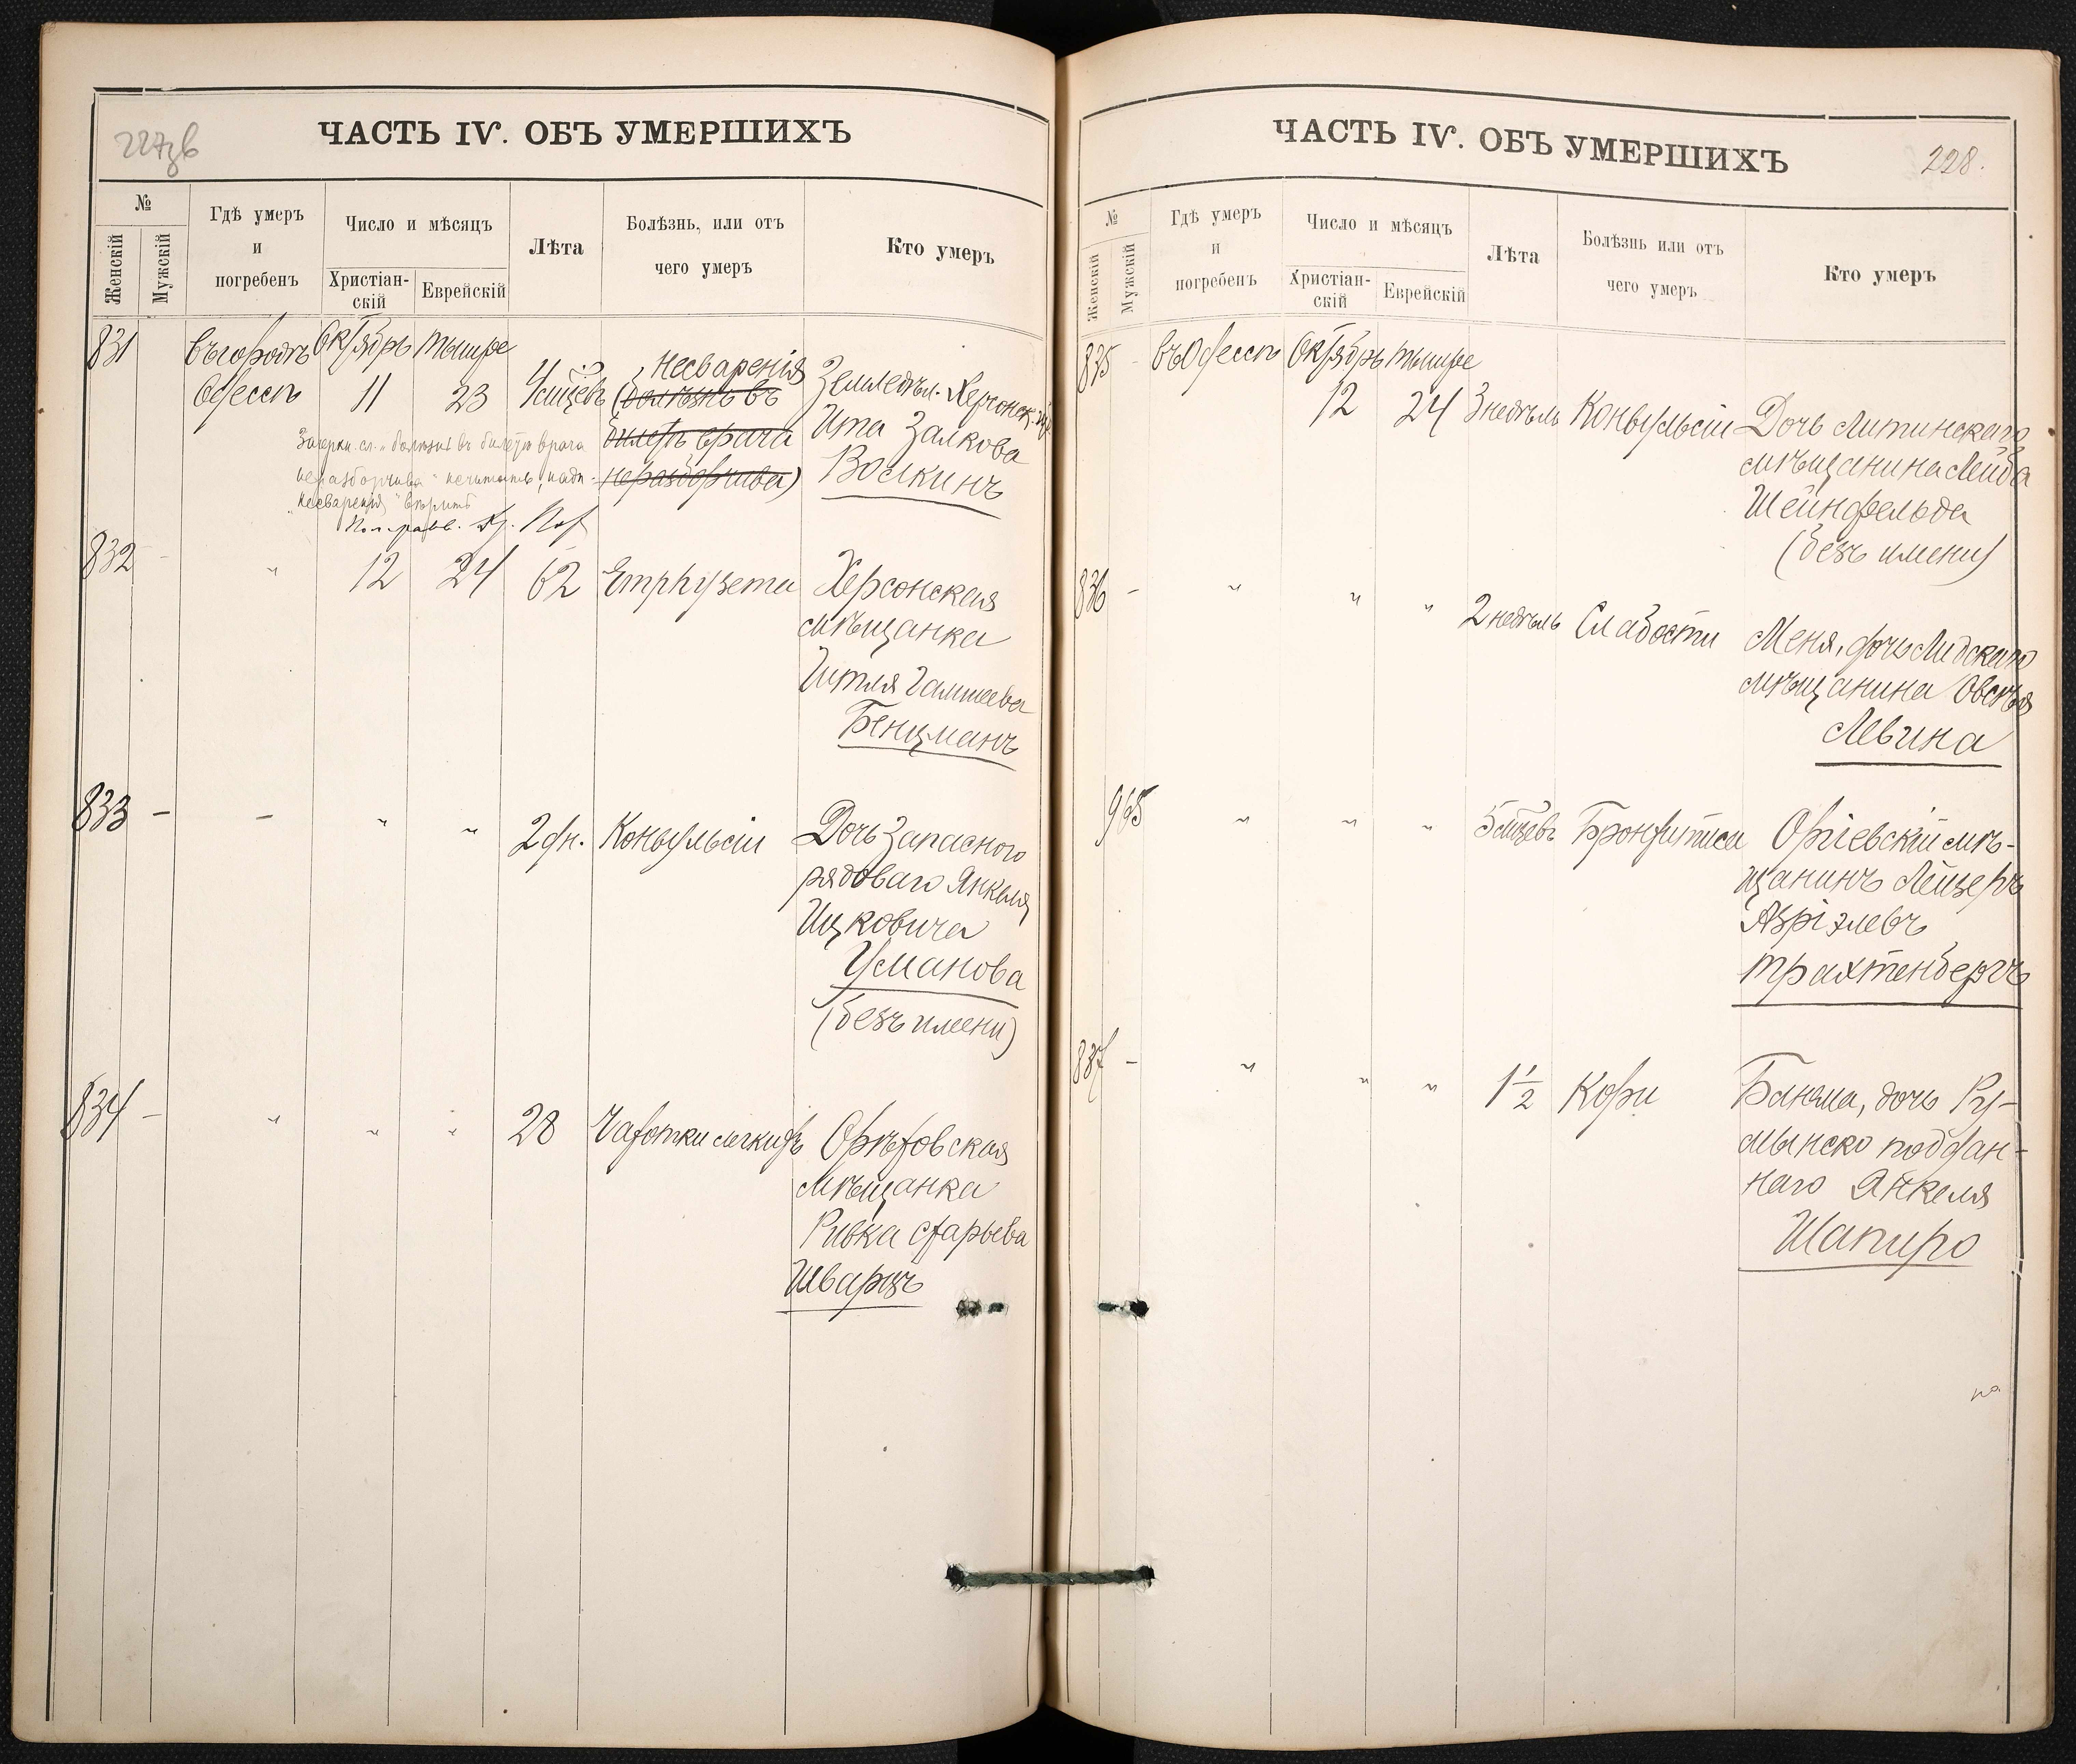 227об
ЧАСТЬ IV. ОБЪ УМЕРШИХЪ
№
Женскій
Мужскій
Гдѣ умеръ
и
погребенъ
Число и мѣсяцъ
Христіан-
скій
Еврейскій
Лѣта
Болѣзнь, или отъ
чего умеръ
Кто умеръ
831
въ городѣ
Одессѣ
Октябрь
11
Тишре
23
4 мѣсяцевъ
несваренія
(болѣзнь въ
билетѣ врача
неразборчива)
Земледѣл. Херсонск. губ.
Ита Залкова
Волкинъ
Зачеркн. сл. "болѣзнь въ билетѣ врача
неразборчива" не читать, надп.
"несваренія" вѣрить
832 -
"
12
24
62
Emphysema
Херсонская
мѣщанка
Гитля
Бенцманъ
833 -
-
"
"
2 дн.
Конвульсіи
Дочь запасного
рядоваго Янкеля
Ицковича
Усманова
(безъ имени)
834 -
"
"
"
28
Чахотки легкихъ
Орѣховская
мѣщанка
Ривка
Шварцъ
ЧАСТЬ IV. ОБЪ УМЕРШИХЪ
228.
№
Женскій
Мужскій
Гдѣ умеръ
и
погребенъ
Число и мѣсяцъ
Христіан-
скій
Еврейскій
Лѣта
Болѣзнь или отъ
чего умеръ
Кто умеръ
835 -
въ Одессѣ
Октябрь
12
Тишре
24
3 недѣль
Конвульсіи
Дочь Литинскаго
мѣщанина Лейба
Шейнфельда
(безъ имени)
836 -
"
"
"
2 недѣль
Слабости
Меня, дочь Лидскаго
мѣщанина Овсѣя
Левина
965
"
"
"
5 мѣсяцевъ
Бронхитиса
Оргіевскій мѣ-
щанинъ Лейзеръ
Азріэлевъ
Трахтенбергъ
837 -
"
"
"
1 1/2
Кори
Банема, дочь Ру-
мынско поддан-
наго Янкеля
Шапиро